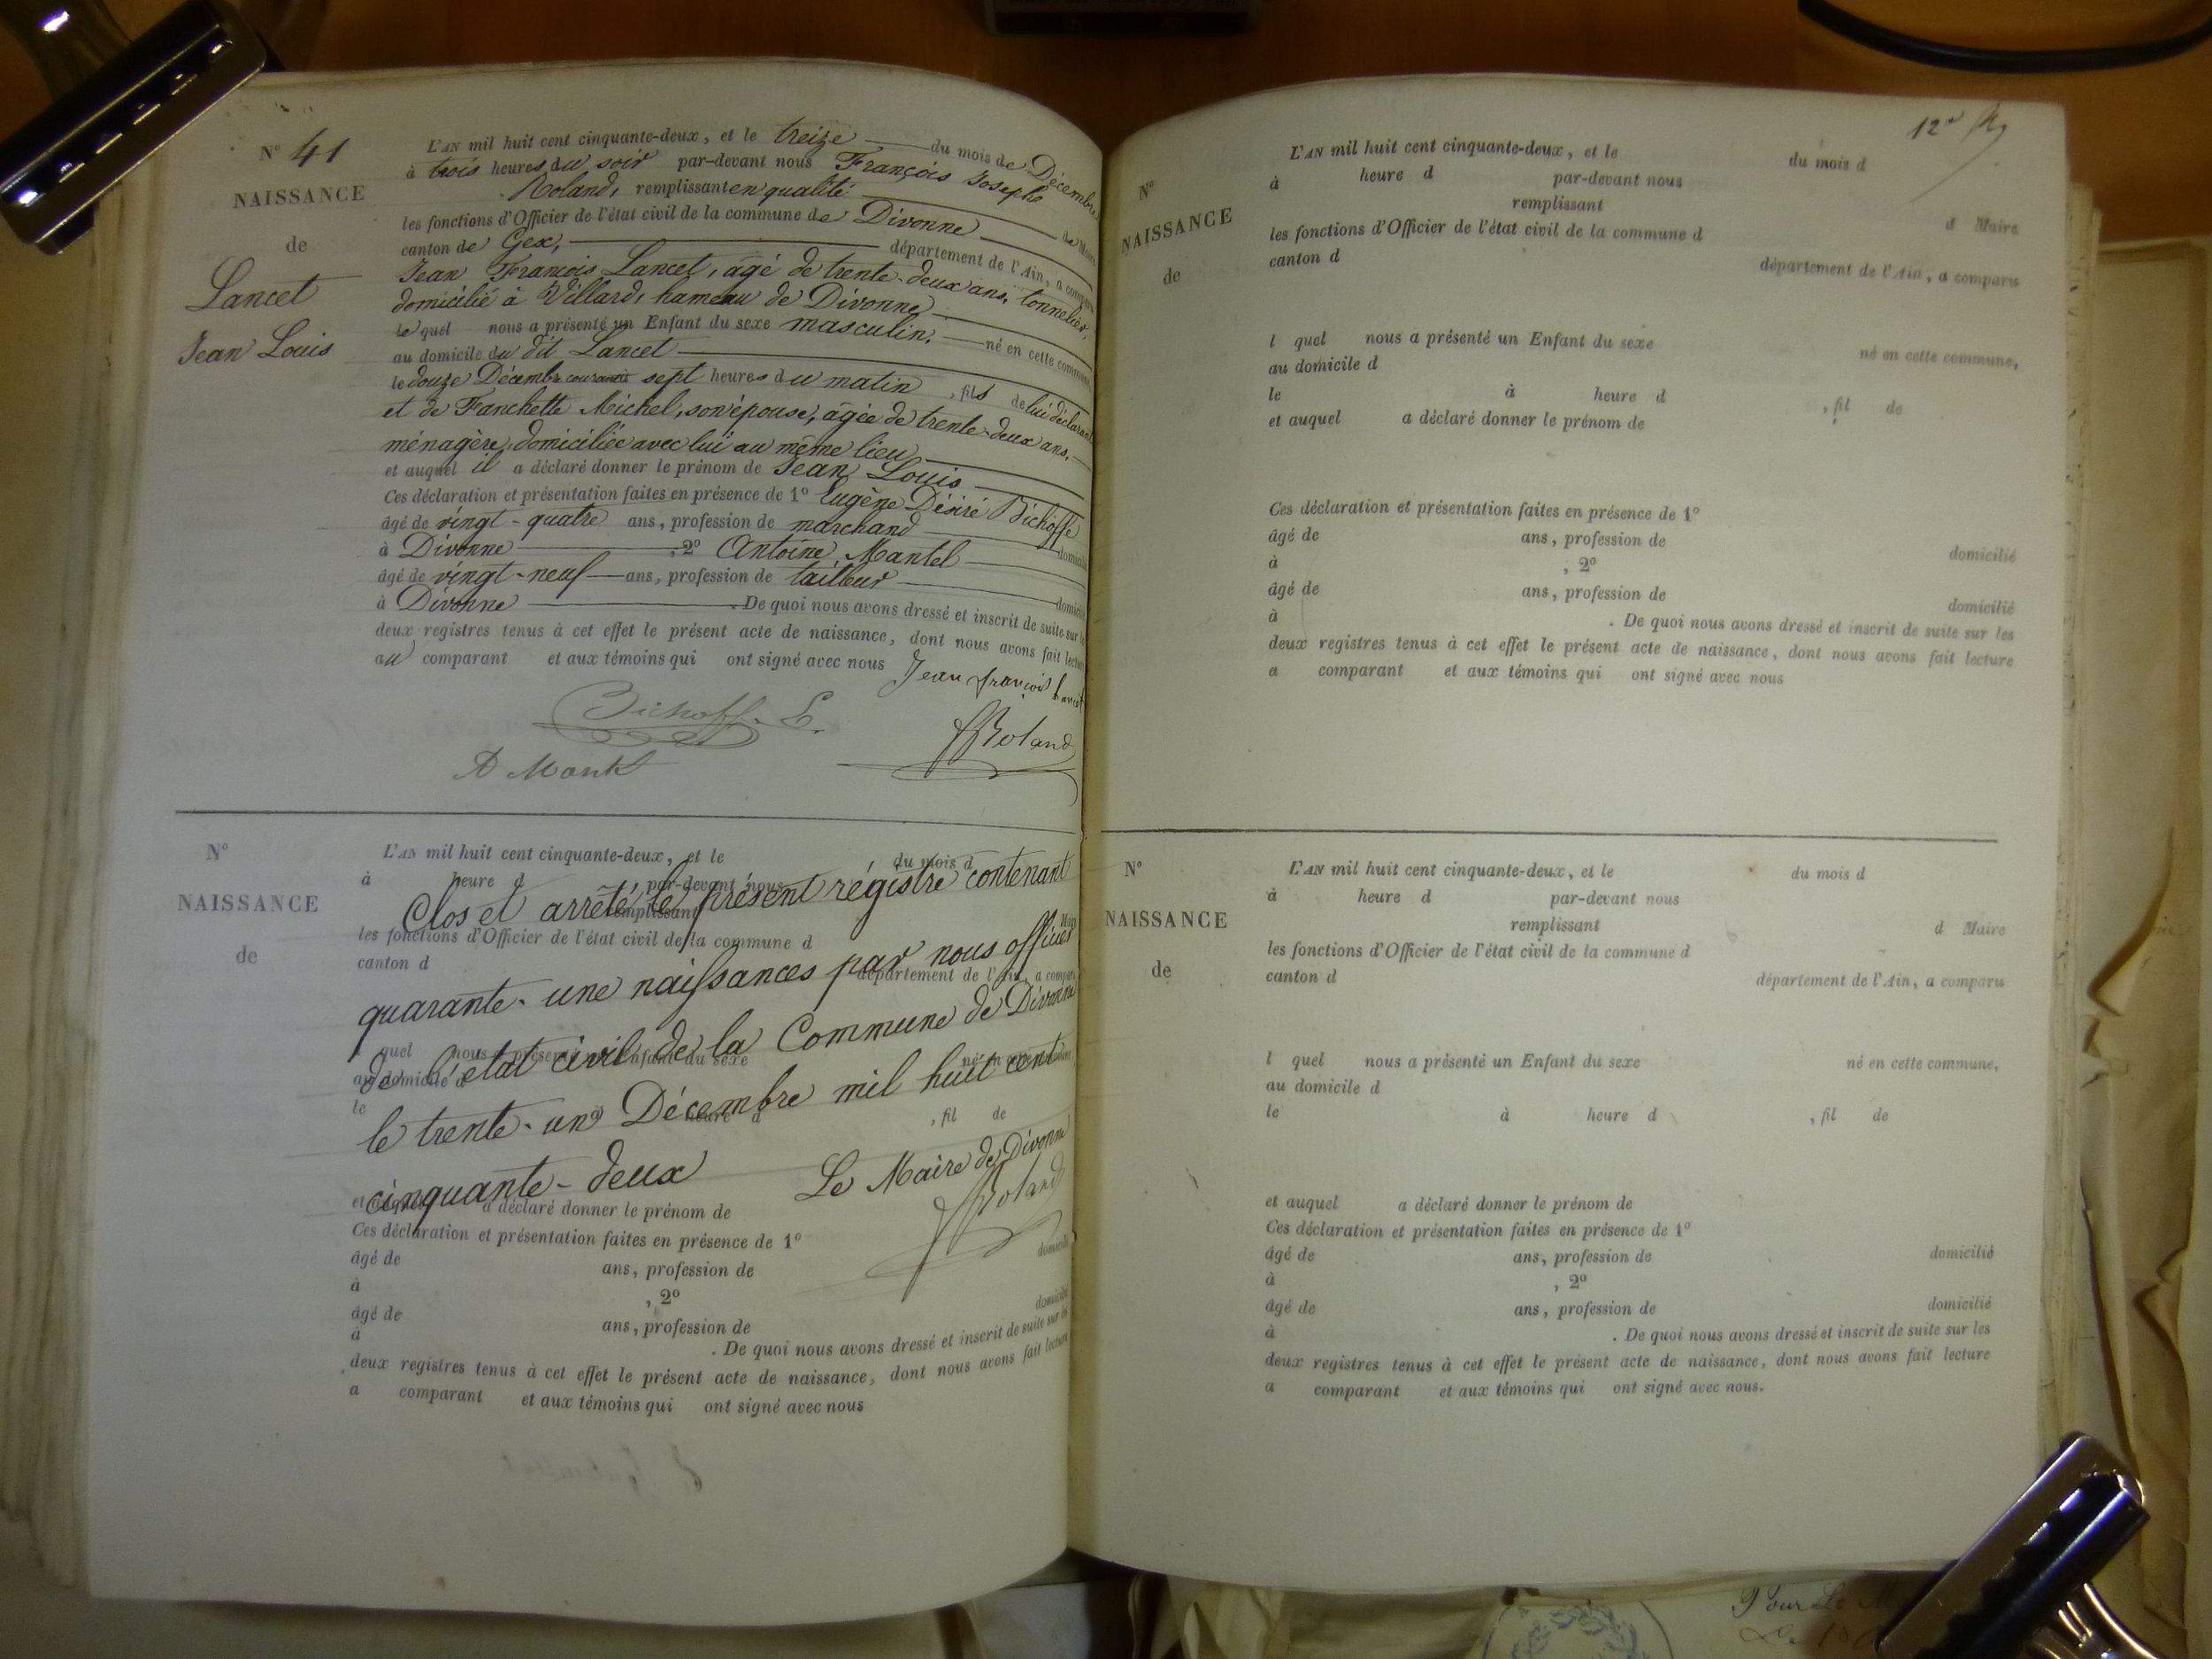 N° 41
NAISSANCE
de
Lancet
Jean Louis
L'AN mil huit cent cinquante-deux, et le treize du mois de Décembre
à trois heures du soir par-devant nous François Joseph
Roland, remplissant en qualité de Maire
les fonctions d'Officier de l'état civil de la commune de Divonne
canton de Gex, département de l'Ain, a comparu
Jean François Lancet, âgé de trente-deux ans, tonnelier,
domicilié à Villard, hameau de Divonne
lequel nous a présenté un Enfant du sexe masculin, né en cette commune,
au domicile du dit Lancet
le douze Décembre courant à sept heures du matin, fils de lui déclarant
et de Franchette Michel, son épouse, âgée de trente-deux ans,
ménagère, domiciliée avec lui au même lieu
et auquel il a déclaré donner le prénom de Jean Louis
Ces déclaration et présentation faites en présence de 1° Eugène Désiré Bichoffe
âgé de vingt-quatre ans, profession de marchand
à Divonne, 2° Antoine Mantel
âgé de vingt-neuf ans, profession de tailleur
à Divonne. De quoi nous avons dressé et inscrit de suite sur les
deux registres tenus à cet effet le présent acte de naissance, dont nous avons fait lecture
au comparant et aux témoins qui ont signé avec nous
Jean françois Lancet
Bichoff. E.
Roland
N°
NAISSANCE
de
L'AN mil huit cent cinquante-deux, et le du mois d
à heure d par-devant nous
remplissant
les fonctions d'Officier de l'état civil de la commune d
canton d département de l'Ain, a comparu
quel nous a présenté un Enfant du sexe né en cette commune,
au domicile d
le heure d , fil de
et auquel a déclaré donner le prénom de
Ces déclaration et présentation faites en présence de 1°
âgé de ans, profession de domicilié
à , 2°
âgé de ans, profession de domicilié
à . De quoi nous avons dressé et inscrit de suite sur les
deux registres tenus à cet effet le présent acte de naissance, dont nous avons fait lecture
a comparant et aux témoins qui ont signé avec nous
Clos et arrêté le présent régistre contenant
quarante-une naissances par nous officier
de l'état civil de la Commune de Divonne
le trente-un Décembre mil huit cent
cinquante-deux
Le Maire de Divonne
Roland
12e
N°
NAISSANCE
de
L'AN mil huit cent cinquante-deux, et le du mois d
à heure d par-devant nous
remplissant d Maire
les fonctions d'Officier de l'état civil de la commune d
canton d département de l'Ain, a comparu
l quel nous a présenté un Enfant du sexe né en cette commune,
au domicile d
le à heure d , fil de
et auquel a déclaré donner le prénom de
Ces déclaration et présentation faites en présence de 1°
âgé de ans, profession de domicilié
à , 2°
âgé de ans, profession de domicilié
à . De quoi nous avons dressé et inscrit de suite sur les
deux registres tenus à cet effet le présent acte de naissance, dont nous avons fait lecture
a comparant et aux témoins qui ont signé avec nous
N°
NAISSANCE
de
L'AN mil huit cent cinquante-deux, et le du mois d
à heure d par-devant nous
remplissant d Maire
les fonctions d'Officier de l'état civil de la commune d
canton d département de l'Ain, a comparu
l quel nous a présenté un Enfant du sexe né en cette commune,
au domicile d
le à heure d , fil de
et auquel a déclaré donner le prénom de
Ces déclaration et présentation faites en présence de 1°
âgé de ans, profession de domicilié
à , 2°
âgé de ans, profession de domicilié
à . De quoi nous avons dressé et inscrit de suite sur les
deux registres tenus à cet effet le présent acte de naissance, dont nous avons fait lecture
a comparant et aux témoins qui ont signé avec nous.
Pour Le